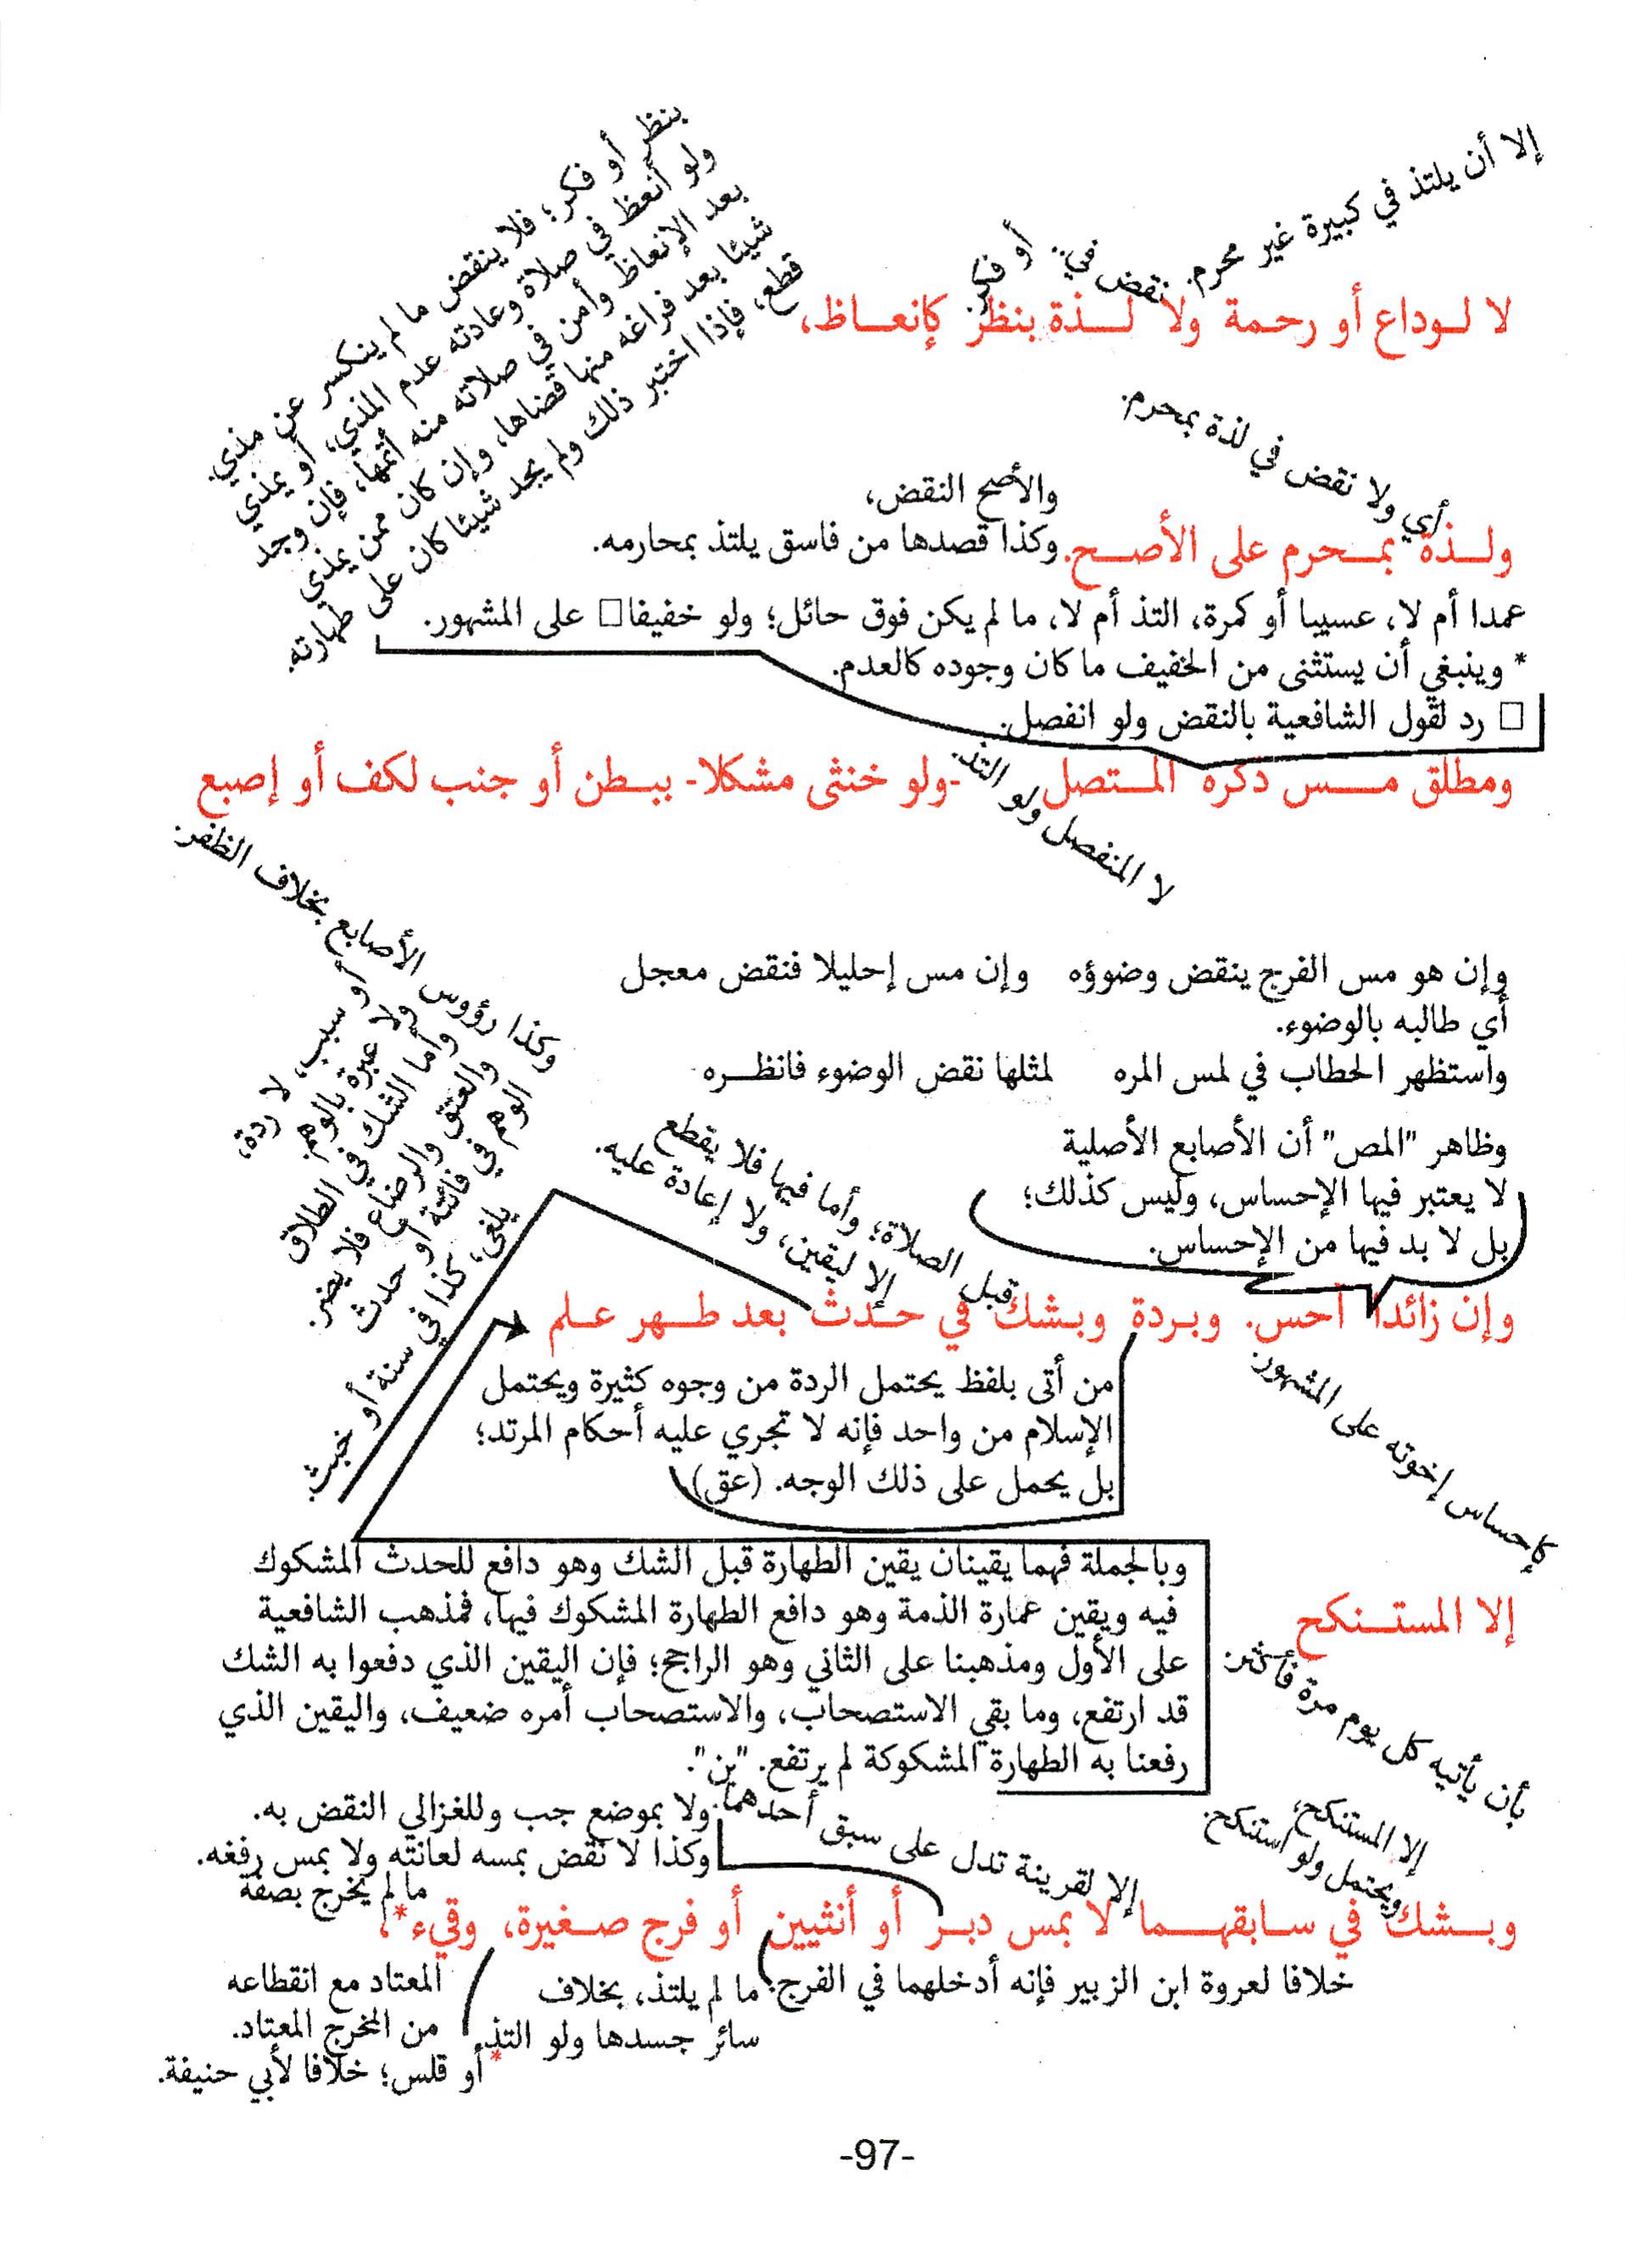 إلا أن يلتذ في كبيرة غير محرم.
نقض في:
أو فكر.
لا لوداع أو رحمة ولا لذة بنظر كإنعاظ،
بنظر أو فكر؛ فلا ينقض ما لم ينكسر عن مذي.
ولو أنعظ في صلاة وعادته عدم المذي، أو يمذي
بعد الإنعاظ وأمن في صلاته منه أتمها، فإن وجد
شيئا بعد فراغه منها قضاها، وإن كان ممن يمذي
قطع، فإذا اختبر ذلك ولم يجد شيئا كان على طهارته.
أي ولا نقض في لذة بمحرم.
والأصح النقض،
ولذة بمحرم على الأصح.
وكذا قصدها من فاسق يلتذ بمحارمه.
عمدا أم لا، عسيبا أو كمرة، التذ أم لا، ما لم يكن فوق حائل؛ ولو خفيفا□ على المشهور.
* وينبغي أن يستثنى من الخفيف ما كان وجوده كالعدم.
□ رد لقول الشافعية بالنقض ولو انفصل.
ومطلق مس ذكره المتصل -ولو خنثى مشكلا- ببطن أو جنب لكف أو إصبع
لا المنفصل ولو التذ.
وكذا رؤوس الأصابع بخلاف الظفر.
وإن هو مس الفرج ينقض وضوؤه وإن مس إحليلا فنقض معجل
أي طالبه بالوضوء.
واستظهر الحطاب في لمس المره لمثلها نقض الوضوء فانظره
وظاهر "المص" أن الأصابع الأصلية
لا يعتبر فيها الإحساس، وليس كذلك؛
بل لا بد فيها من الإحساس.
أو سبب، لا ردة،
ولا عبرة بالوهم.
وأما الشك في الطلاق
والعتق والرضاع فلا يضر.
الوهم في فائتة أو حدث
يلغى، كذا في سنة أو خبث.
قبل الصلاة؛ وأما فيها فلا يقطع
إلا ليقين، ولا إعادة عليه.
وإن زائدا أحس. وبردة وبشك في حدث بعد طهر علم
كإحساس إخوته على المشهور.
من أتى بلفظ يحتمل الردة من وجوه كثيرة ويحتمل
الإسلام من واحد فإنه لا تجري عليه أحكام المرتد؛
بل يحمل على ذلك الوجه. (عق)
وبالجملة فهما يقينان يقين الطهارة قبل الشك وهو دافع للحدث المشكوك
فيه ويقين عمارة الذمة وهو دافع الطهارة المشكوك فيها، فمذهب الشافعية
على الأول ومذهبنا على الثاني وهو الراجح؛ فإن اليقين الذي دفعوا به الشك
قد ارتفع، وما بقي الاستصحاب، والاستصحاب أمره ضعيف، واليقين الذي
رفعنا به الطهارة المشكوكة لم يرتفع. "بن".
إلا المستنكح
بأن يأتيه كل يوم مرة فأكثر.
إلا المستنكح،
ويحتمل ولو استنكح.
إلا لقرينة تدل على سبق أحدهما.
ولا بموضع جب وللغزالي النقض به.
وكذا لا نقض بمسه لعانته ولا بمس رفغه.
ما لم يخرج بصفة
وبشك في سابقهما لا بمس دبر أو أنثيين أو فرج صغيرة، وقيء*،
خلافا لعروة ابن الزبير فإنه أدخلهما في الفرج.
ما لم يلتذ، بخلاف
سائر جسدها ولو التذ.
المعتاد مع انقطاعه
من المخرج المعتاد.
*أو قلس؛ خلافا لأبي حنيفة.
-97-